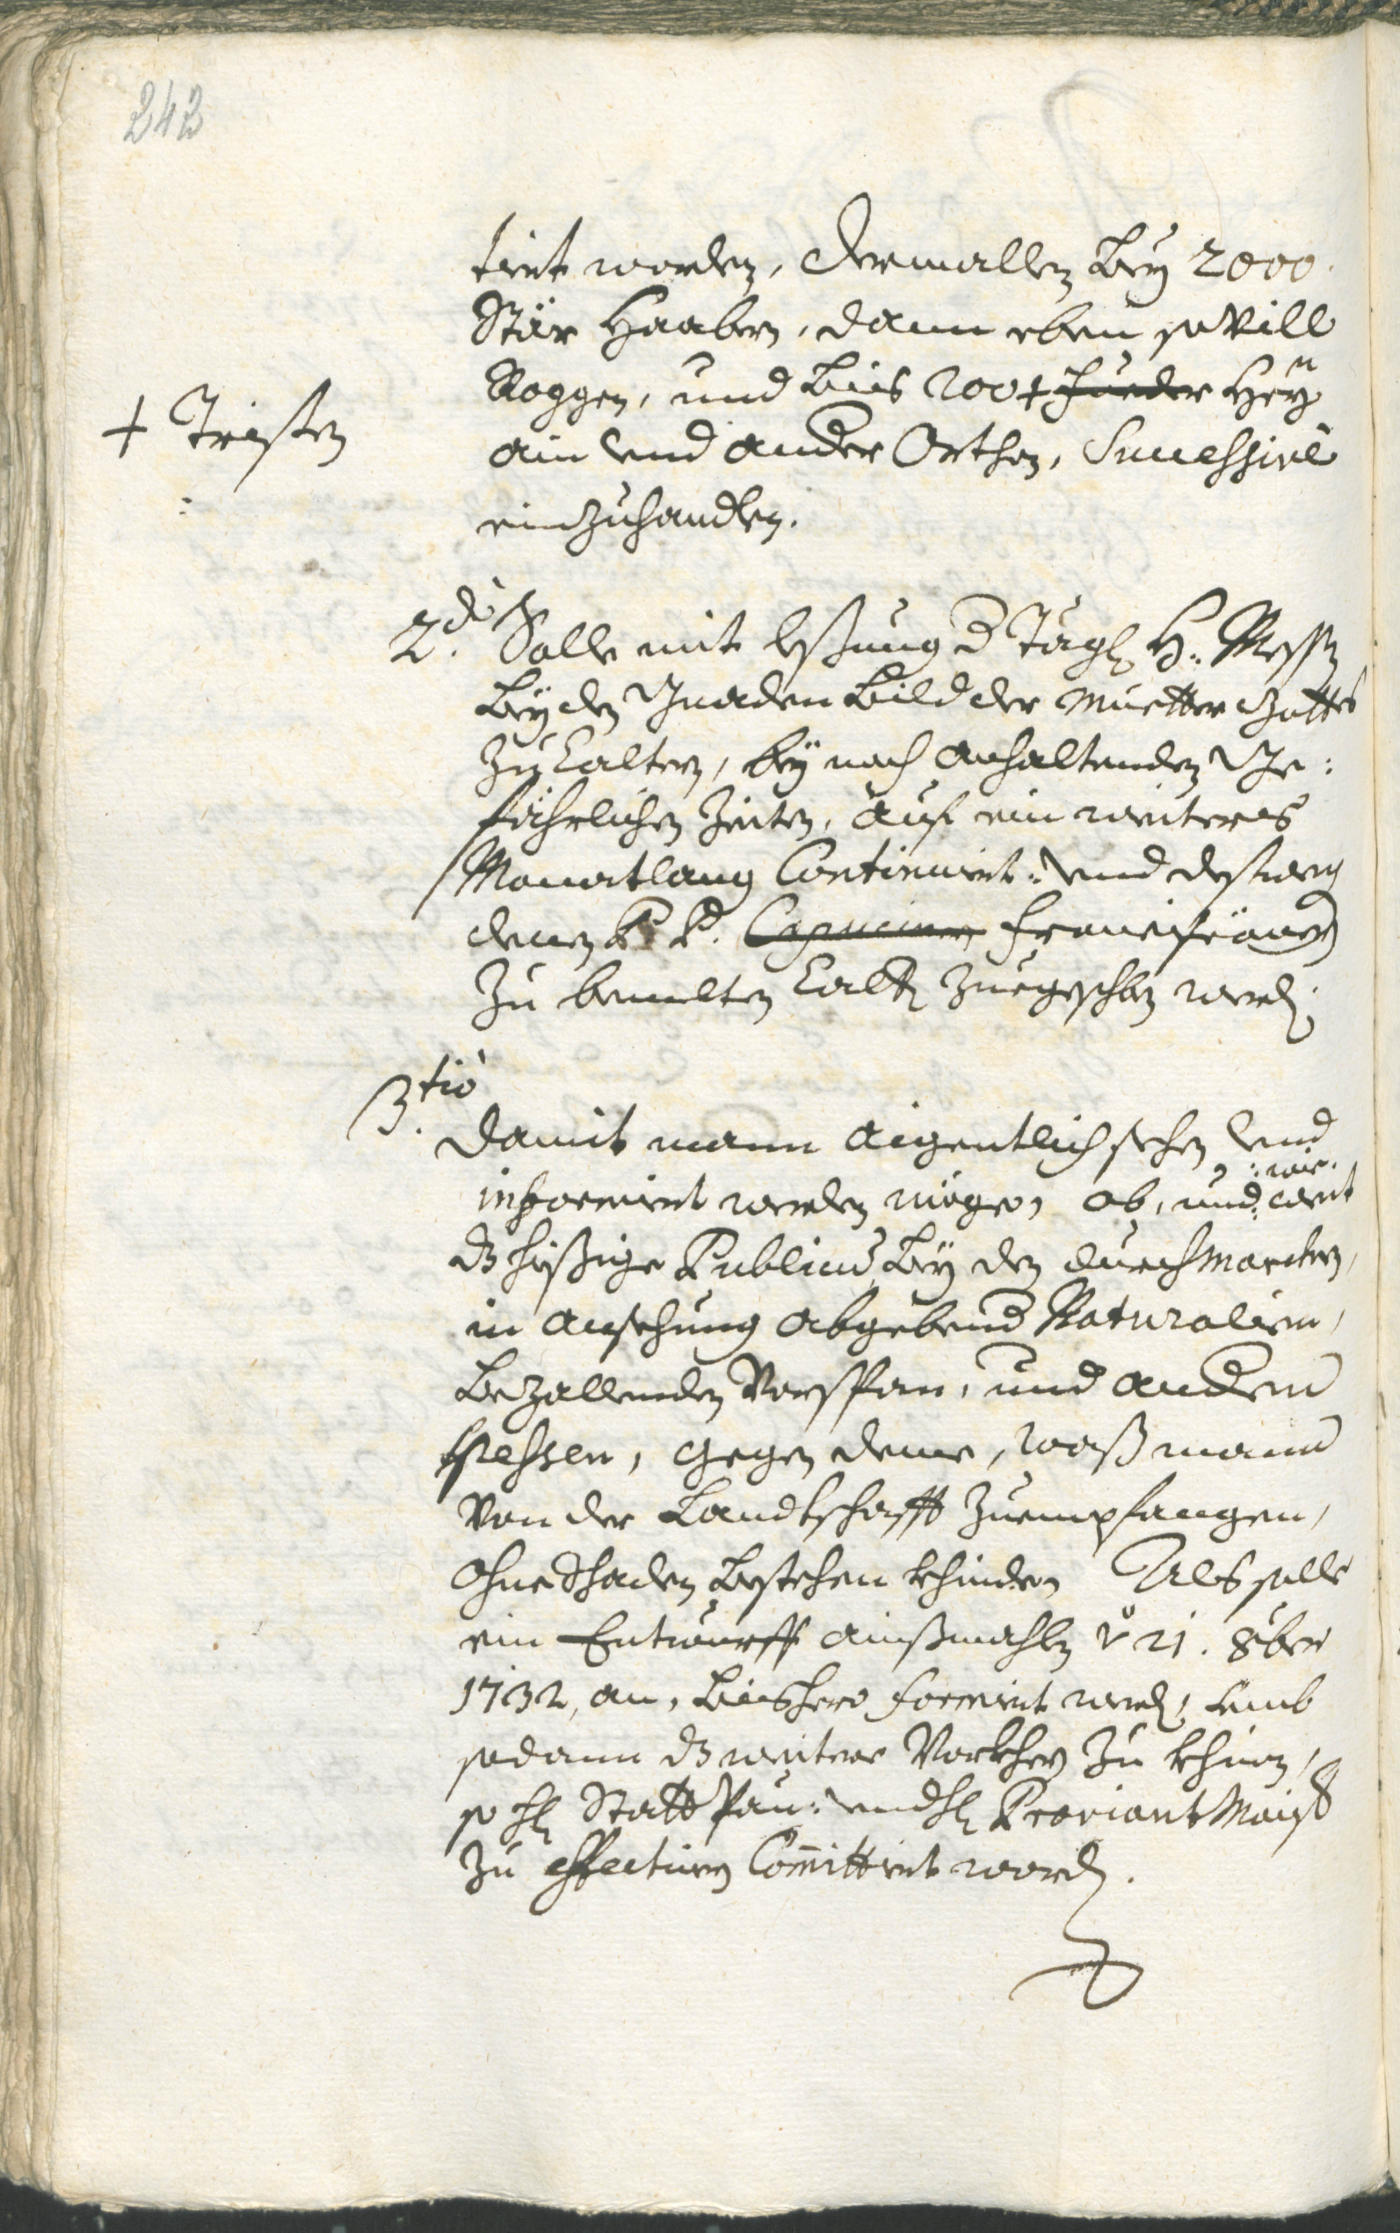 242
tiert worden, dermallen bey 2000.
Stär Haabern, dann eben so vill
Roggen, und bis 200 + Fueder Hey
+ Tristen
ain vnd ander Orthen, Successive
einzuhandlen.
2.do Solle mit lesßung d tägl H: Messen
bey den Gnaden Bild der Muetter Gottes
zu Caltern, bey noch anhaltenden Ge:
fährlichen Zeiten, auf ein weiteres
Monatlang Continuirt: vnd deswegen
denen P. P. Capuciner Franciscanern
zu bemelten Caltern zuegeschriben werden.
3.tio
Damit mann aigentlich sehen vnd
informirt werden möge, ob, und: wie: weit
dz hießige Publicum bey den durchmarchen,
in ansehung abgebend Naturalien,
bezallenden Vorspan, und andern
spesen, gegen deme, waß mann
von der Landtschafft zuempfangen,
ohne Schaden bestehen khinde, Als solle
ein Entwurff ainßmahls v 21. 8ber
1732, an, bishero formirt werden, umb
sodann dz weitere Vorkhern zu khinen,
so H Statt Pau: und H Proviant Maister
zu effectuirn Committirt worden.